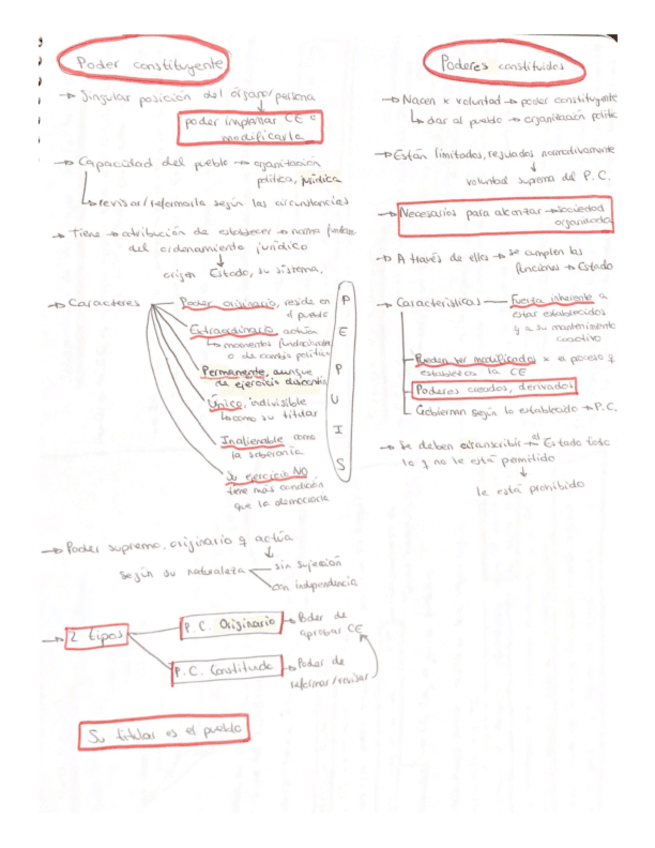 Poder constituyente
→ Singular posición del órgano/persona
↓
poder implantar CE o
modificarla
→ Capacidad del pueblo → organización
política, jurídica
↳ revisar/reformarla según las circunstancias
→ Tiene → atribución de establecer → norma fundam.
del ordenamiento jurídico
↓
origen Estado, su sistema.
→ Caracteres
Poder originario, reside en
el pueblo
Extraordinario, actúa
↳ momentos fundacionales
o de cambio político
Permanente, aunque
de ejercicio discontin
Único, indivisible
↳ como su titular
Inalienable como
la soberanía
Su ejercicio NO
tiene más condición
que la democracia
P
E
P
U
I
S
→ Poder supremo, originario q actúa
↓
según su naturaleza
sin sujeción
con independencia
→ 2 tipos
P.C. Originario → Poder de
aprobar CE
P.C. Constituido → Poder de
reformar/revisar
Su titular es el pueblo
Poderes constituidos
→ Nacen x voluntad → poder constituyente
↳ dar al pueblo → organización polític
→ Están limitados, regulados normativamente
↓
voluntad suprema del P.C.
→ Necesarios para alcanzar → sociedad
organizada
→ A través de ellos → se cumplen las
funciones → Estado
→ Características
Fuerza inherente a
estar establecidos
y a su mantenimiento
coactivo
Pueden ser modificados x el proceso q
establezca la CE
Poderes creados, derivados
Gobiernan según lo establecido → P.C.
→ Se deben circunscribir → el Estado todo
lo q no le está permitido
↓
le está prohibido